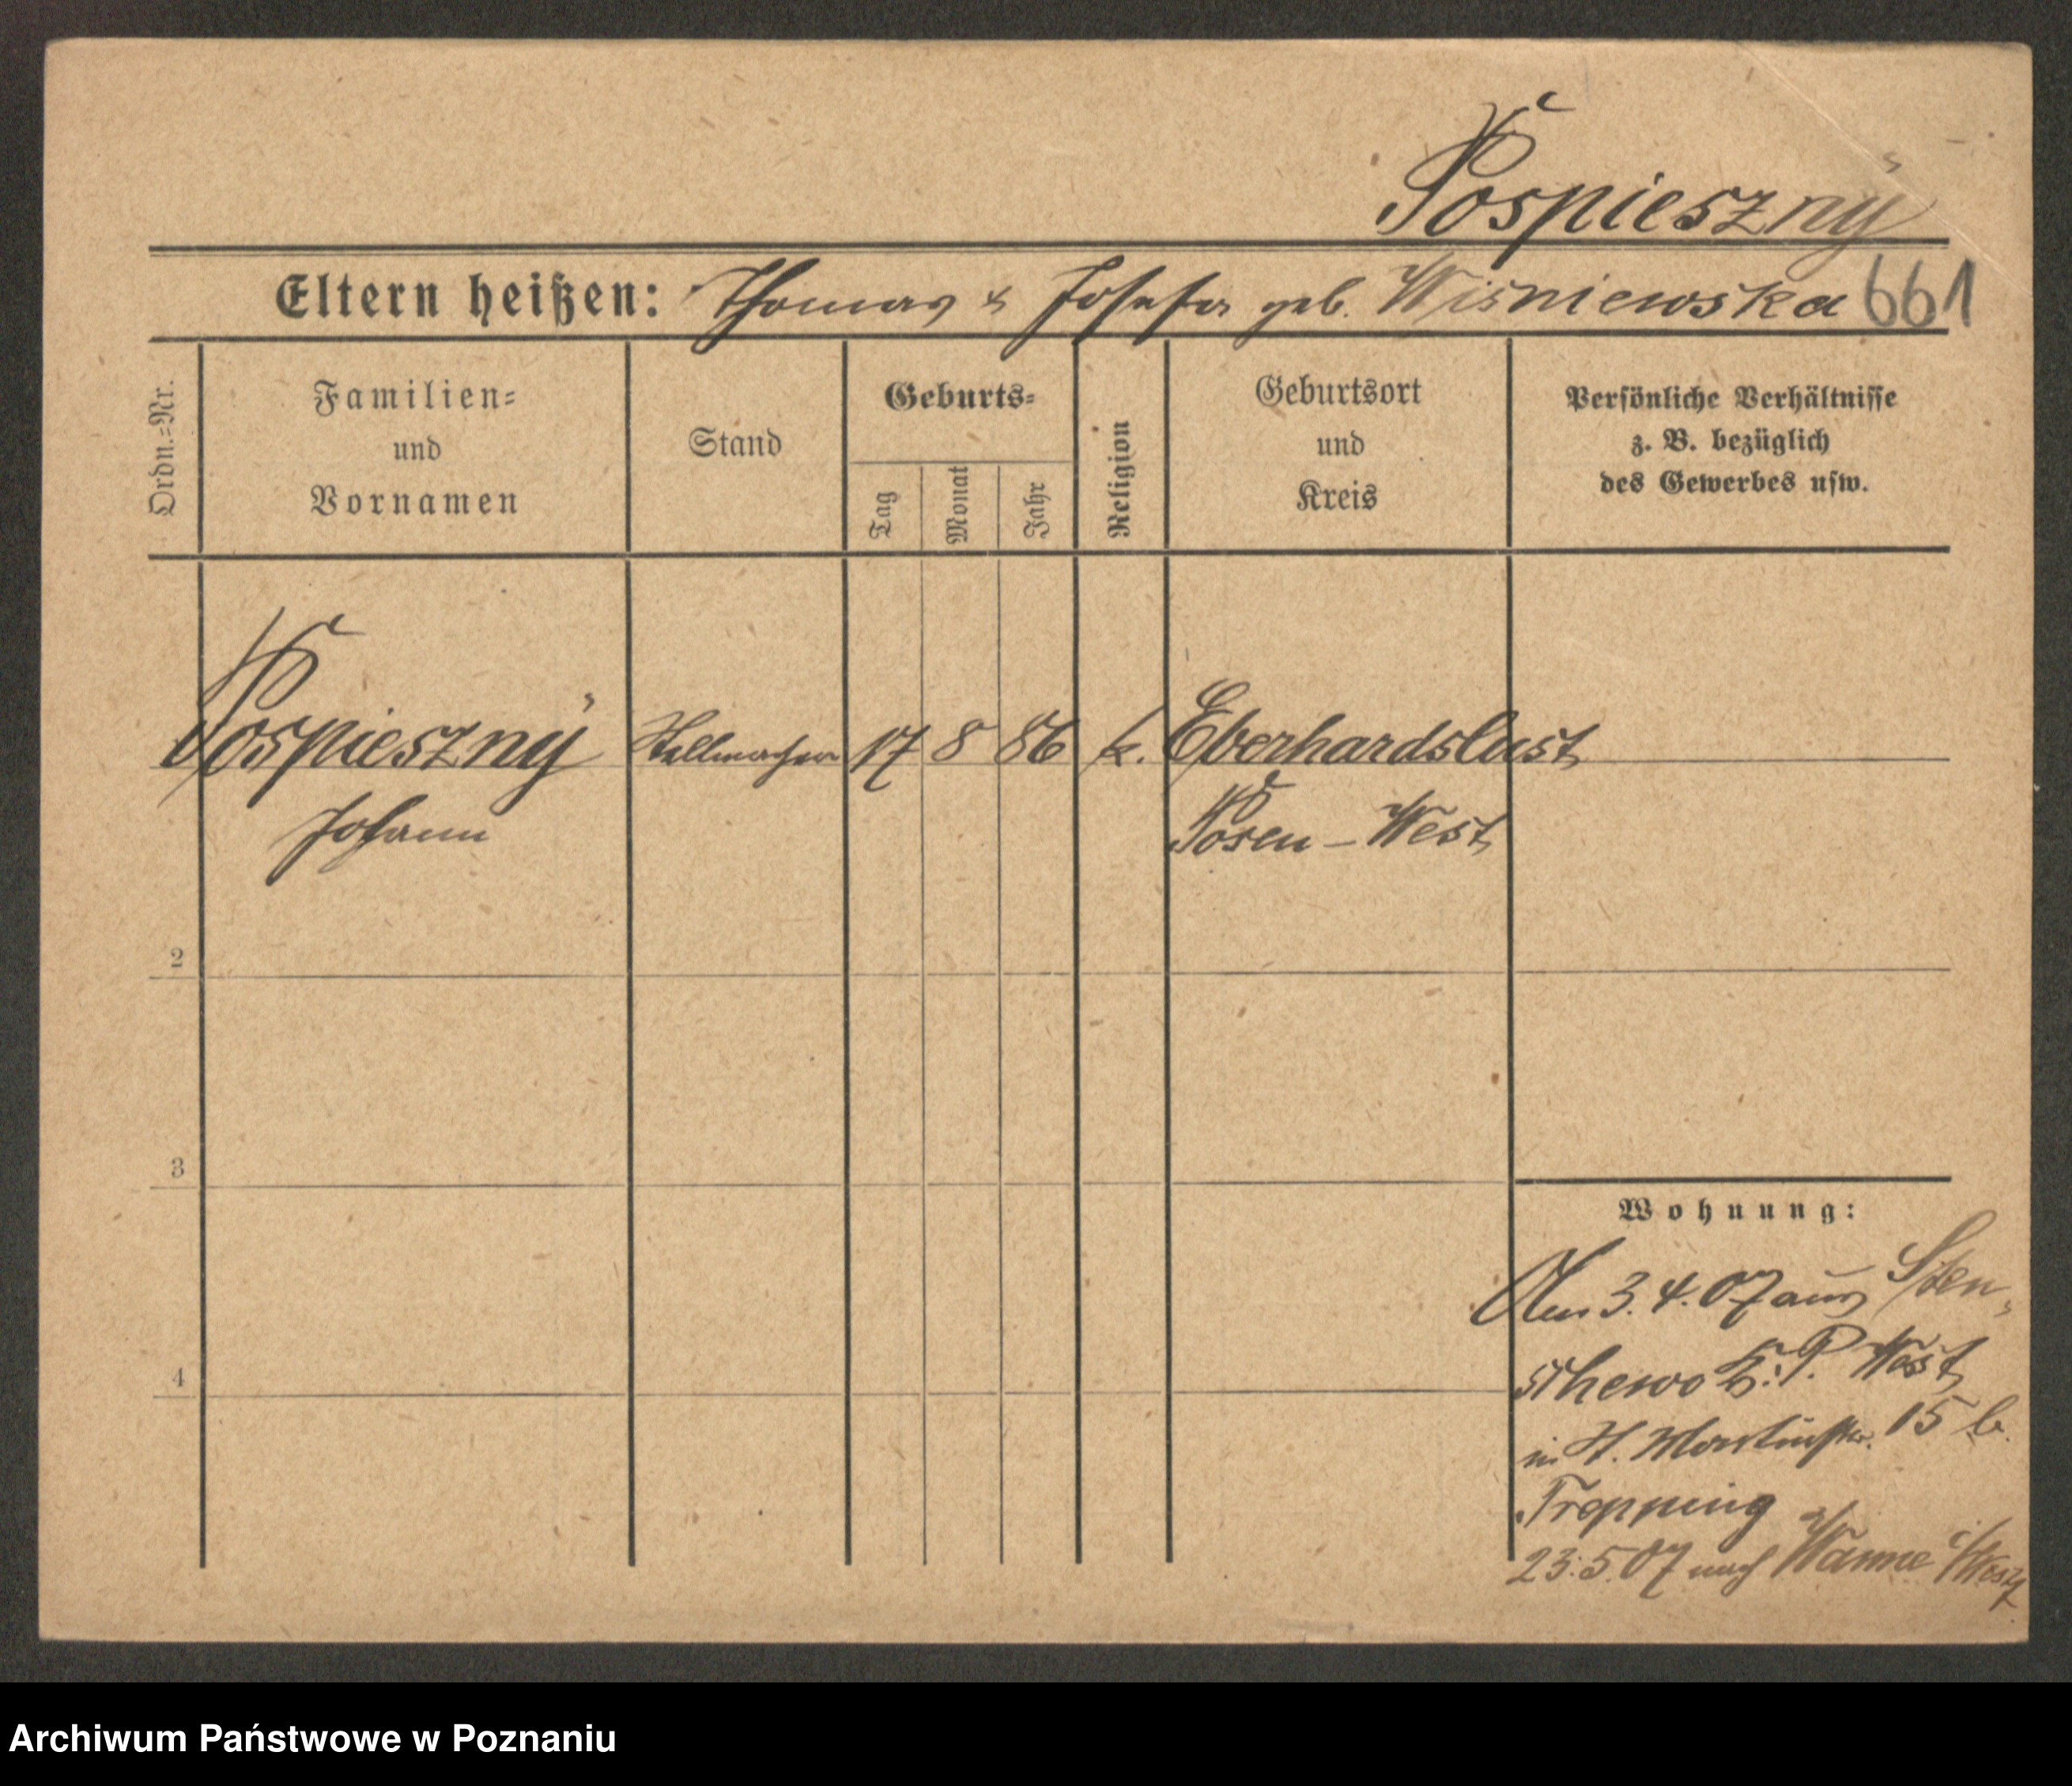 Pospieszny
Eltern heißen: Thomas & Josefa geb. Wiśniewska 661
Ordn.=Nr.
Familien=
und
Vornamen
Stand
Geburts=
Tag
Monat
Jahr
Religion
Geburtsort
und
Kreis
Persönliche Verhältnisse
z. B. bezüglich
des Gewerbes usw.
Pospieszny Stellmacher 17 8 86 k. Eberhardslust
Johann Posen - West
2
3
4
Wohnung:
3.4.07 aus Sten-
schewo Kr. P. West
in St. Martinstr. 15 b.
23.5.07 nach Wanne i/Westf.
Archiwum Państwowe w Poznaniu